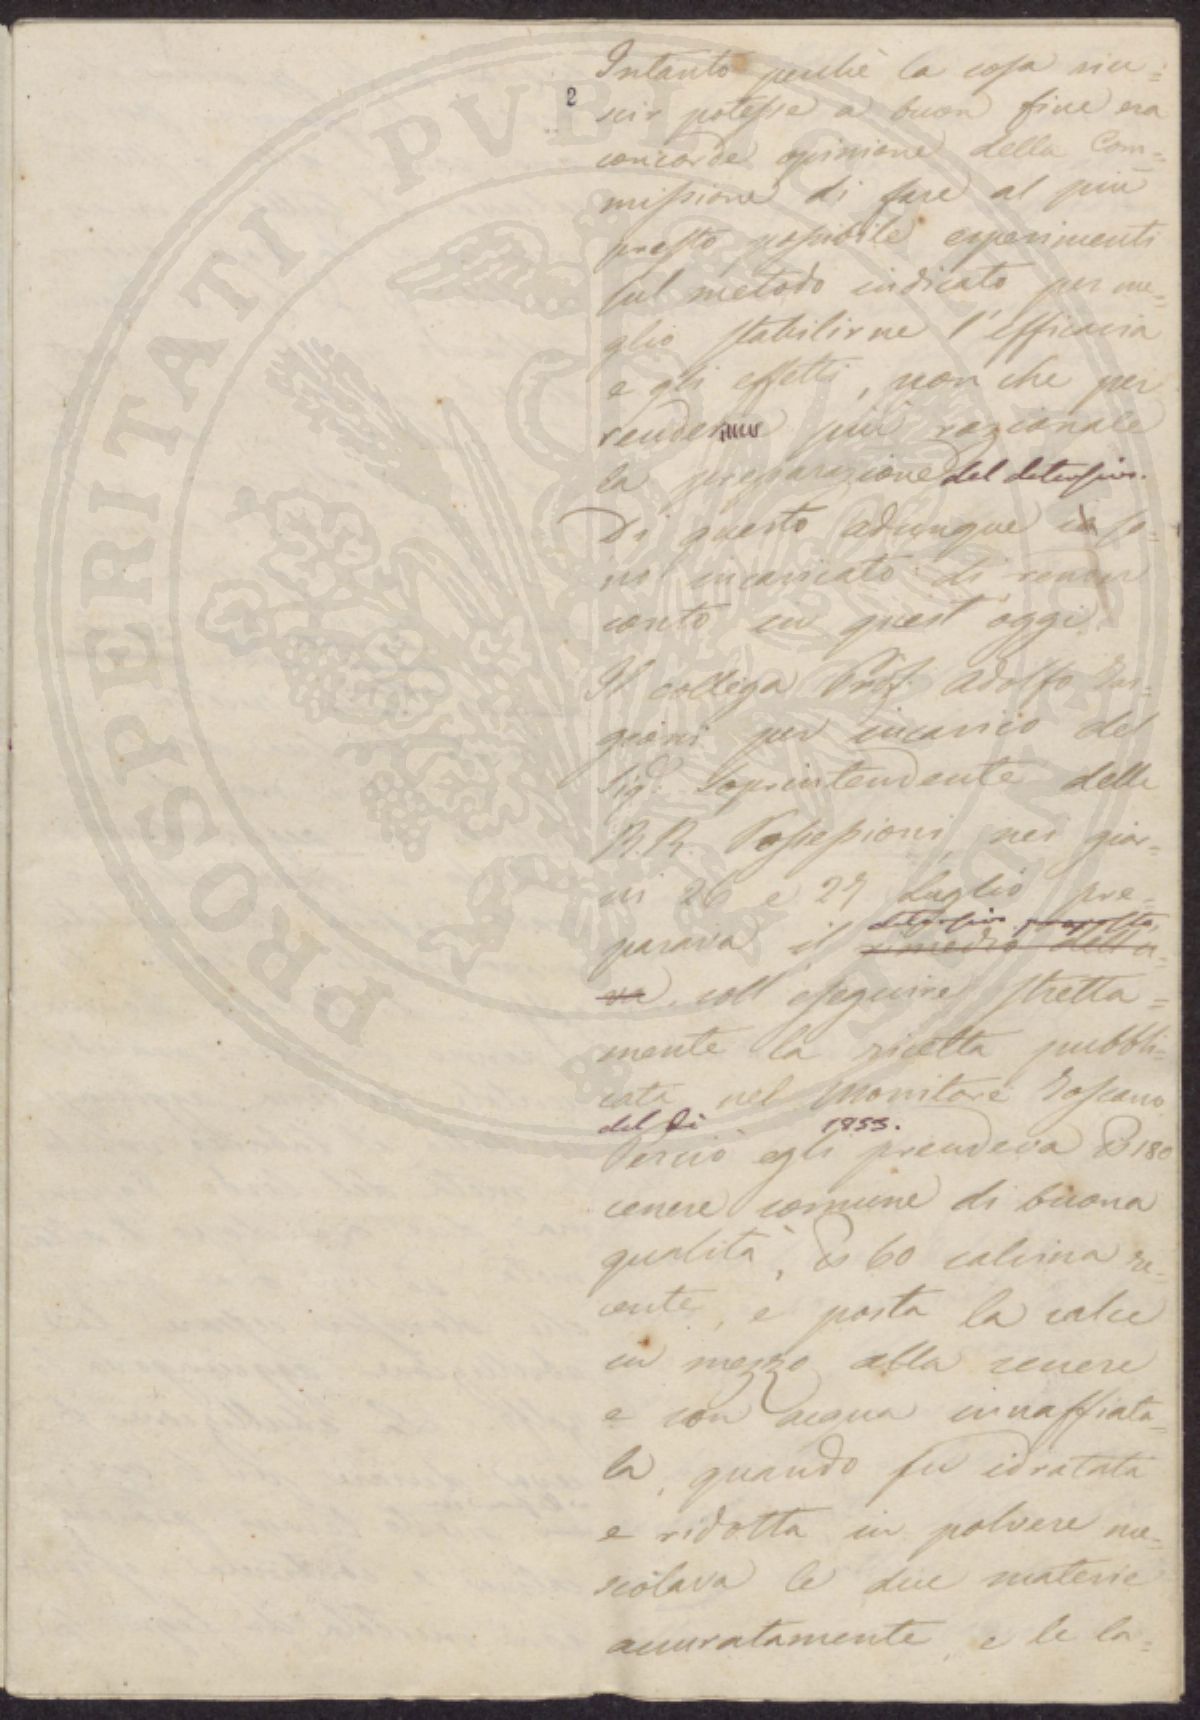 2
Intanto perchè la cosa riu=
scir potesse a buon fine era
concorde opinione della Com=
missione di fare al più
presto possibile esperimenti
sul metodo indicato per me=
glio stabilirne l'efficacia
e gli effetti, non che per
render più razionale
la preparazione del detersivo.
Di questo adunque io so=
no incaricato di render
conto in quest'oggi.
Il collega Prof. Adolfo Tar=
gioni per incarico del
Sigr. Soprintendente delle
R.R. Possessioni, nei gior=
ni 26 e 27 Luglio pre=
detersivo proposto,
parava il rimedio dell'u=
va, coll'eseguire stretta=
mente la ricetta pubbli=
cata nel Monitore Toscano
del dì 1853.
Perciò egli prendeva 180
cenere comune di buona
qualità, 60 calcina re=
cente, e posta la calce
in mezzo alla cenere
e con acqua innaffiata=
la, quando fu idratata
e ridotta in polvere me=
scolava le due materie
accuratamente, e le la=
PROSPERITATI PVBLICAE AVGENDAE